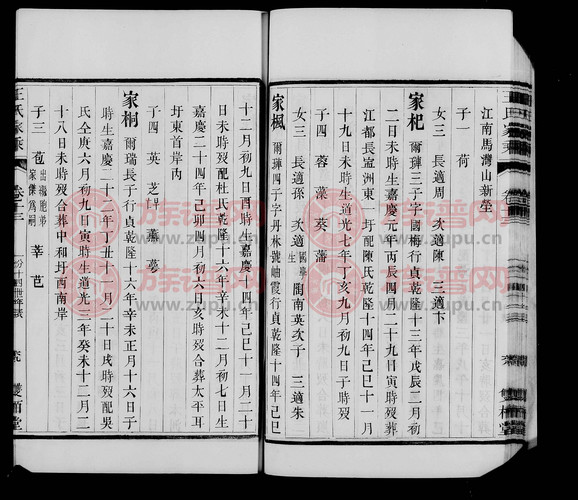 江南馬灣山新塋
子一 荷
女三 長適周 次適陳 三適卞
家杞 爾璉三子字國梅行貞乾隆十三年戊辰二月初
二日未時生嘉慶元年丙辰四月二十九日寅時歿
江都長寍洲東一圩配陳氏乾隆十四年己巳十一月
十九日未時生道光七年丁亥九月初九日子時歿
子四 蓉 藻 葵 藩
女三 長適孫 次適國學生閔南英次子 三適朱
家楓 爾璉四子字丹林號岫霞行貞乾隆十四年己巳
十二月初九日酉時生嘉慶十四年己巳十一月二十
日未時歿配杜氏乾隆十六年辛未十二月初七日生
嘉慶二十四年己卯四月初六日亥時歿合葬太平耳
圩東首岸內
子四 英 芝 蕭 夢
家桐 爾瑞長子行貞乾隆十六年辛未正月十六日子
時生嘉慶二十二年丁丑十一月二十日戌時歿配吳
氏仝庚六月初九日寅時生道光三年癸未十二月二
十八日未時歿合葬中和圩西南岸
子三 苞出繼胞弟家傑爲嗣 莘 芭
王氏家乘 卷十三
雙栢堂
族譜网
www.zupu.cn